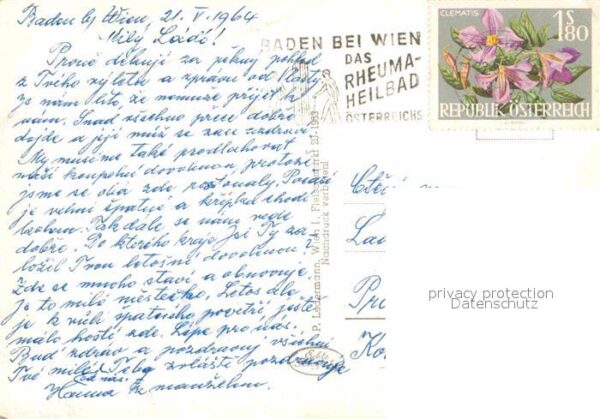 Baden bei Wien, 21. V. 1964
Milý Láďo!
Prosně děkuji za pěkný pohled
z Tvého výletu a zprávu od Vlasty
Je nám líto, že nemůže přijet k
nám. Snad všechno přece dobře
dojde a její muž se zase uzdraví.
My musíme také prodlužovat
naši koupelní dovolenou protože
jsme se oba zde rostonaly. Počasí
je velmi špatné a chodí
Tak dále se nám vede
dobře. Do kterého kraje jsi Ty
ložil Tvou letošní dovolenou?
Zde se mnoho staví a obnovuje
je to milé městečko. Letos
je k vůli špatnému povětří, ještě
málo hostí zde. Lépe pro nás.
Buď zdráv a pozdravuj všechny
Tvé milé. Tebe zvláště pozdravuje
Hanna se manželem
BADEN BEI WIEN
DAS
RHEUMA-
HEILBAD
ÖSTERREICHS
CLEMATIS
1S80
REPUBLIK ÖSTERREICH
P. Ledermann, Wien I,
Nachdruck verboten!
privacy protection
Datenschutz